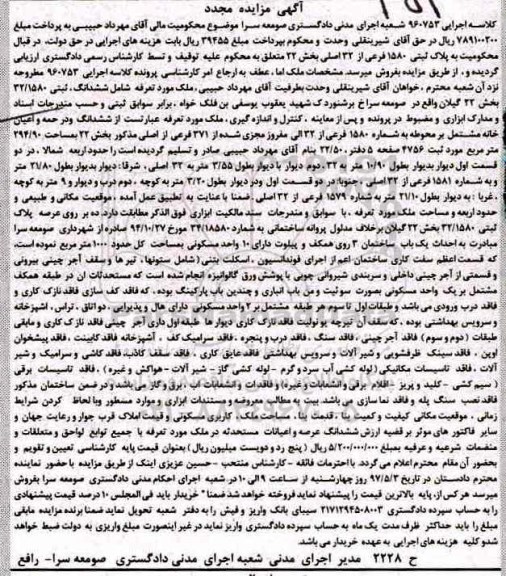 آگهی مزایده مجدد
کلاسه اجرایی ۹۶۰۷۵۳ شعبه اجرای مدنی دادگستری صومعه سرا موضوع محکومیت مالی آقای مهرداد حبیبی به پرداخت مبلغ
۷۸۹۱۰۰۲۰۰ ریال در حق آقای شیرینقلی وحدت و محکوم بپرداخت مبلغ ۳۹۴۵۵ ریال بابت هزینه های اجرایی در حق دولت، در قبال
محکومیت به پلاک ثبتی ۱۵۸۰ فرعی از ۳۲ اصلی بخش ۲۲ متعلق به محکوم علیه توقیف و توسط کارشناس رسمی دادگستری ارزیابی
گردیده و، از طریق مزایده بفروش میرسد. مشخصات ملک اما، عطف به ارجاع امر کارشناسی پرونده کلاسه اجرایی ۹۶۰۷۵۳ مطروحه
نزد آن شعبه محترم، خواهان آقای شیرینقلی وحدت بطرفیت آقای مهرداد حبیبی، ملک مورد تعرفه شامل ششدانگ، ثبتی ۳۲/۱۵۸۰
بخش ۲۲ گیلان واقع در صومعه سرا خ برشنورد ک شهید یعقوب یوسفی بن فلک خواه، برابر سوابق ثبتی و حسب مندرجات اسناد
و مدارک ابرازی و مضبوط در پرونده و پس از معاینه، کنترل و اندازه گیری، ملک مورد تعرفه عبارتست از ششدانگ و در حمه و اعیان
خانه مشتمل بر محوطه به شماره ۱۵۸۰ فرعی از ۳۲ الی مفروز مجزی شده از ۳۷۱ فرعی از اصلی مذکور بخش ۲۲ بمساحت ۲۹۴/۹۰
متر مربع مورد ثبت ۴۷۵۶ صفحه ۵ دفتر ۳۲/۵۰ بنام آقای مهرداد حبیبی صادر و تسلیم گردیده است را حدود اربعه شمالا، در دو
قسمت اول دیوار بدیوار بطول ۱۰/۹۰ متر به ۳۲، دوم دیوار با دیوار بطول ۳/۵۵ متر به ۳۲ اصلی، شرقا: دیوار بدیوار بطول ۲۱/۸۰ متر
و به شماره ۱۵۸۱ فرعی از ۳۲ اصلی، جنوبا: در دو قسمت اول و در دیوار بطول ۳/۲۰ متر به کوچه، دوم درب و دیوار و ۹ متر به کوچه
، غربا: به دیوار بطول ۲۱/۱۰ متر به شماره ۱۵۷۹ فرعی از ۳۲ اصلی، ضمنا با عنایت به تطبیق عمل آمده، موقعیت مکانی و طبیعی و
حدود اربعه و مساحت ملک مورد تعرفه، با سوابق و مندرجات سند مالکیت ابرازی فوق الذکر مطابقت دارد. ده بر روی عرصه پلاک
ثبتی ۳۲/۱۵۸۰ بخش ۲۲ گیلان برخلاف مدلول پروانه ساختمانی به شماره ۳۴/۱۸۵۸۰ مورخ ۹۴/۱۰/۲۷ صادره از شهرداری صومعه سرا
مبادرت به احداث یک باب ساختمان ۳ روی همکف و پیلوت دارای ۱۰ واحد مسکونی بمساحت کل حدود ۱۰۰۰ متر مربع نموده است،
که قسمت اعظم سفت کاری ساختمان اعم از اجرای فونداسیون، اسکلت بتنی (شامل ستونها، تیرها و سقف آجر چینی بیرونی
و قسمتی از آجر چینی داخلی و سربندی شیروانی چوبی با پوشش ورق گالوانیزه انجام شده است که مستحدثات آن در طبقه همکف
مشتمل بر یک واحد مسکونی بصورت سوئیت و من باب انباری و چندین باب پارکینگ بوده، که فاقد کف سازی فاقد نازک کاری و
فاقد درب ورودی می باشد و طبقات اول تا سوم هر طبقه مشتمل بر ۳ واحد مسکونی دارای هال و پذیرایی، دو اتاق، تراس، آشپزخانه
و سرویس بهداشتی بوده، که سقف آن تیرچه یونولیت فاقد نازک کاری دیوارها طبقه اول داری آجر چینی فاقد نازک کاری و مابقی
طبقات (دوم و سوم) فاقد آجر چینی، فاقد سنگ، فاقد درب و پنجره، فاقد سرامیک کف، آشپزخانه فاقد کابینت، فاقد پیشخوان
اوپن، فاقد سینک ظرفشویی و شیر آلات و سرویس بهداشتی فاقد عایق کاری، فاقد سقف کاذب، فاقد کاشی و سرامیک و شیر
آلات، فاقد تاسیسات مکانیکی (لوله کشی آب سرد و گرم - لوله کشی گاز - شیر آلات - هواکش و غیره)، فاقد تاسیسات برقی
(سیم کشی - کلید و پریز - اقلام برقی و انشعابات و غیره) و فاقدات و انشعابات آب، برق و گاز می باشد و در ضمن ساختمان مذکور
فاقد نصب سنگ پله و فاقد نما سازی می باشد. بیت به مطالب معروضه و مستندات ابرازی و موارد مسطور وبا لحاظ کردن شرایط
زمانی، موقعیت مکانی کیفیت و کمیت بنا، قدمت بنا، مساحت ملک، کاربری مسکونی و قیمت املاک قرب جوار و رعایت جهان و
سایر فاکتور های موثر بر قضیه ارزش ششدانگ عرصه و اعیانات مستحدثه در ملک مورد تعرفه با جمیع توابع لواحق و متعلقات و
منضمات شرعیه و عرفیه بمبلغ ۵/۲۰۰/۰۰۰/۰۰۰ ریال (پنج رد و دویست میلیون ریال) بعنوان قیمت پایه کارشناسی تعیین و تقویم و
بحضور آن مقام محترم اعلام می گردد. با احترامات فائقه - کارشناس منتخب - حسین عزیزی اینک از طریق مزایده با حضور نماینده
محترم دادستان در تاریخ ۹۷/۵/۳ روز چهارشنبه از ساعت ۹ الی ۱۰ در شعبه اجرای احکام مدنی دادگستری صومعه سرا بفروش
میرسد هر کس از، پایه بالاترین قیمت را پیشنهاد نماید فروخته خواهد شد ضمنا" خریدار باید فی المجلس ۱۰ درصد قیمت پیشنهادی
را به حساب سپرده دادگستری ۲۱۷۱۲۹۴۵۰۸۰۰۳ سیبای بانک واریز و فیش را به دفتر شعبه تحویل نماید ضمنا برنده مزایده مابقی
مبلغ را باید حداکثر ظرف مدت یک ماه به حساب سپرده دادگستری واریز نماید در غیر اینصورت مبلغ واریزی به دولت ضبط خواهد
شد و کلیه هزینه های اجرایی به عهده خریدار می باشد.
ح ۲۲۲۸ مدیر اجرای مدنی شعبه اجرای مدنی دادگستری صومعه سرا - رافع